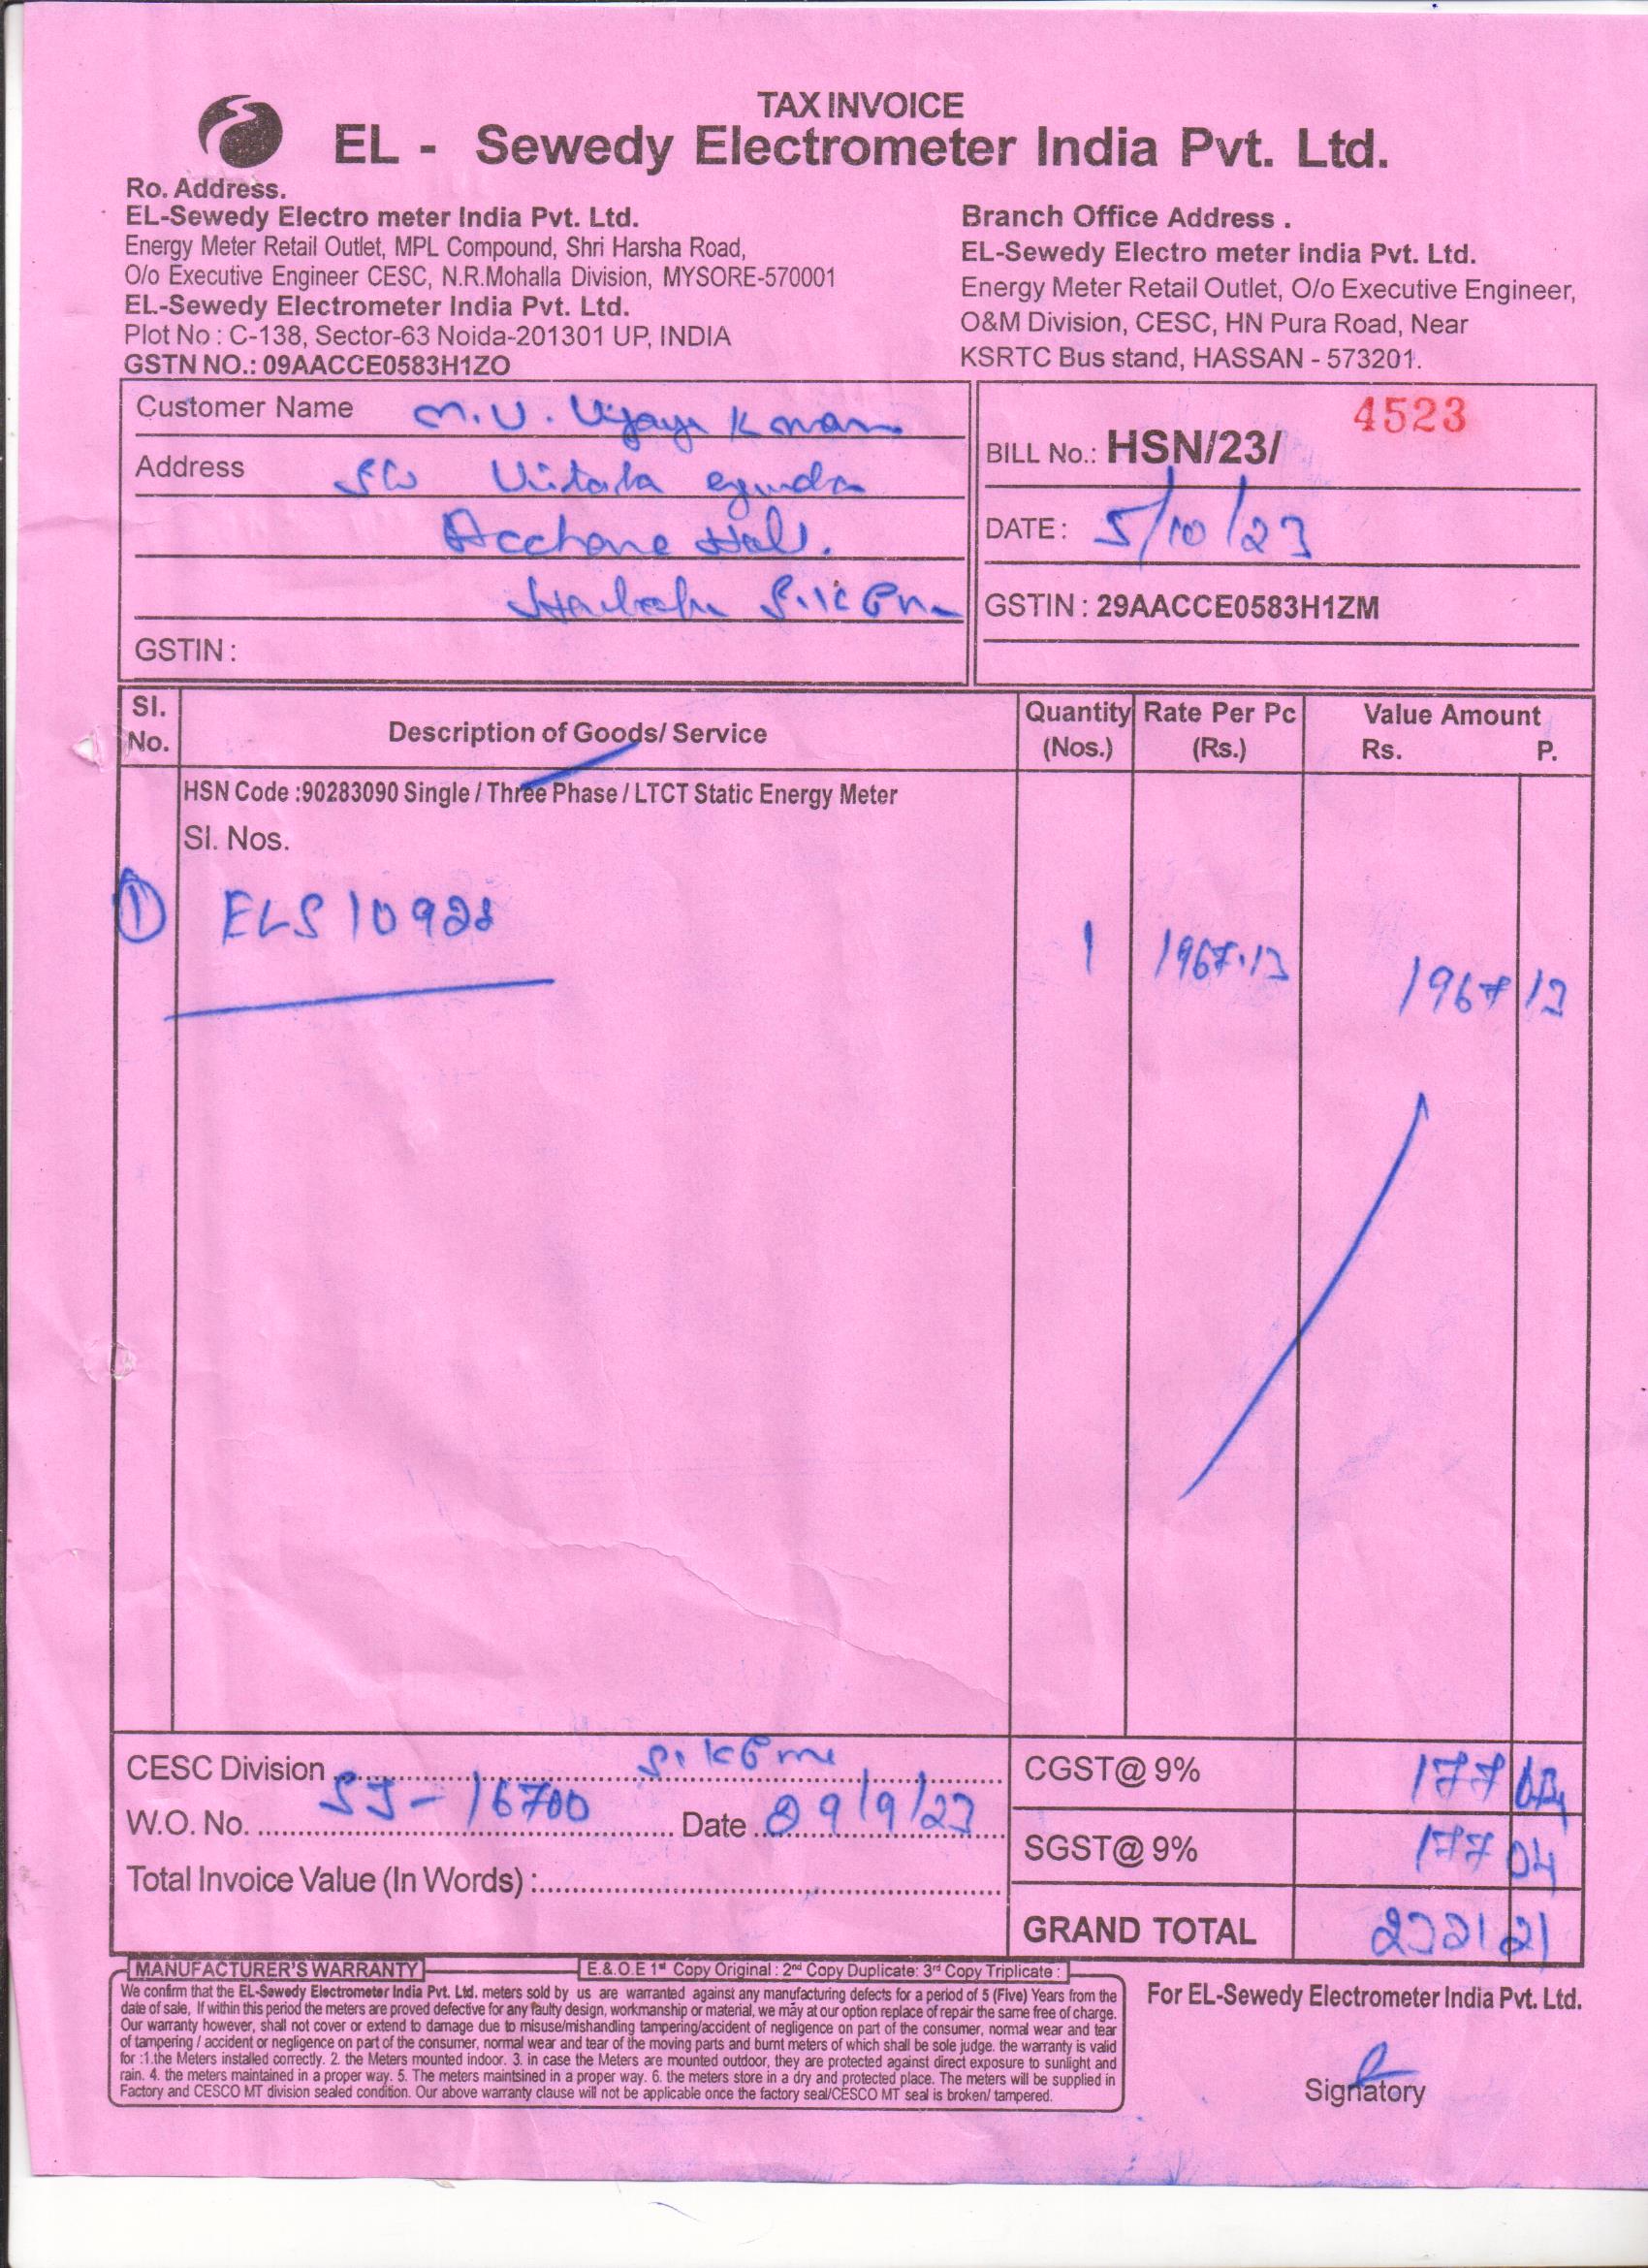 TAX INVOICE
EL - Sewedy Electrometer India Pvt. Ltd.
Ro. Address.
EL-Sewedy Electro meter India Pvt. Ltd.
Energy Meter Retail Outlet, MPL Compound, Shri Harsha Road,
O/o Executive Engineer CESC, N.R.Mohalla Division, MYSORE-570001
EL-Sewedy Electrometer India Pvt. Ltd.
Plot No : C-138, Sector-63 Noida-201301 UP, INDIA
GSTN NO.: 09AACCE0583H1ZO
Branch Office Address .
EL-Sewedy Electro meter India Pvt. Ltd.
Energy Meter Retail Outlet, O/o Executive Engineer,
O&M Division, CESC, HN Pura Road, Near
KSRTC Bus stand, HASSAN - 573201.
Customer Name M.V. Vijaya Kumar
Address S/o
GSTIN :
BILL No.: HSN/23/ 4523
DATE : 5/10/23
GSTIN : 29AACCE0583H1ZM
Sl. No. Description of Goods/ Service Quantity (Nos.) Rate Per Pc (Rs.) Value Amount Rs. P.
HSN Code :90283090 Single / Three Phase / LTCT Static Energy Meter
Sl. Nos.
1 ELS 10928 1 1967.13 1967 13
CESC Division
W.O. No. SJ-16700 Date 09/9/23
Total Invoice Value (In Words) :
CGST@ 9% 177 04
SGST@ 9% 177 04
GRAND TOTAL 2321 21
MANUFACTURER'S WARRANTY
E.&.O.E 1st Copy Original : 2nd Copy Duplicate: 3rd Copy Triplicate :
We confirm that the EL-Sewedy Electrometer India Pvt. Ltd. meters sold by us are warranted against any manufacturing defects for a period of 5 (Five) Years from the
date of sale, If within this period the meters are proved defective for any faulty design, workmanship or material, we may at our option replace of repair the same free of charge.
Our warranty however, shall not cover or extend to damage due to misuse/mishandling tampering/accident of negligence on part of the consumer, normal wear and tear
of tampering / accident or negligence on part of the consumer, normal wear and tear of the moving parts and burnt meters of which shall be sole judge. the warranty is valid
for :1.the Meters installed correctly. 2. the Meters mounted indoor. 3. in case the Meters are mounted outdoor, they are protected against direct exposure to sunlight and
rain. 4. the meters maintained in a proper way. 5. The meters maintsined in a proper way. 6. the meters store in a dry and protected place. The meters will be supplied in
Factory and CESCO MT division sealed condition. Our above warranty clause will not be applicable once the factory seal/CESCO MT seal is broken/ tampered.
For EL-Sewedy Electrometer India Pvt. Ltd.
Signatory